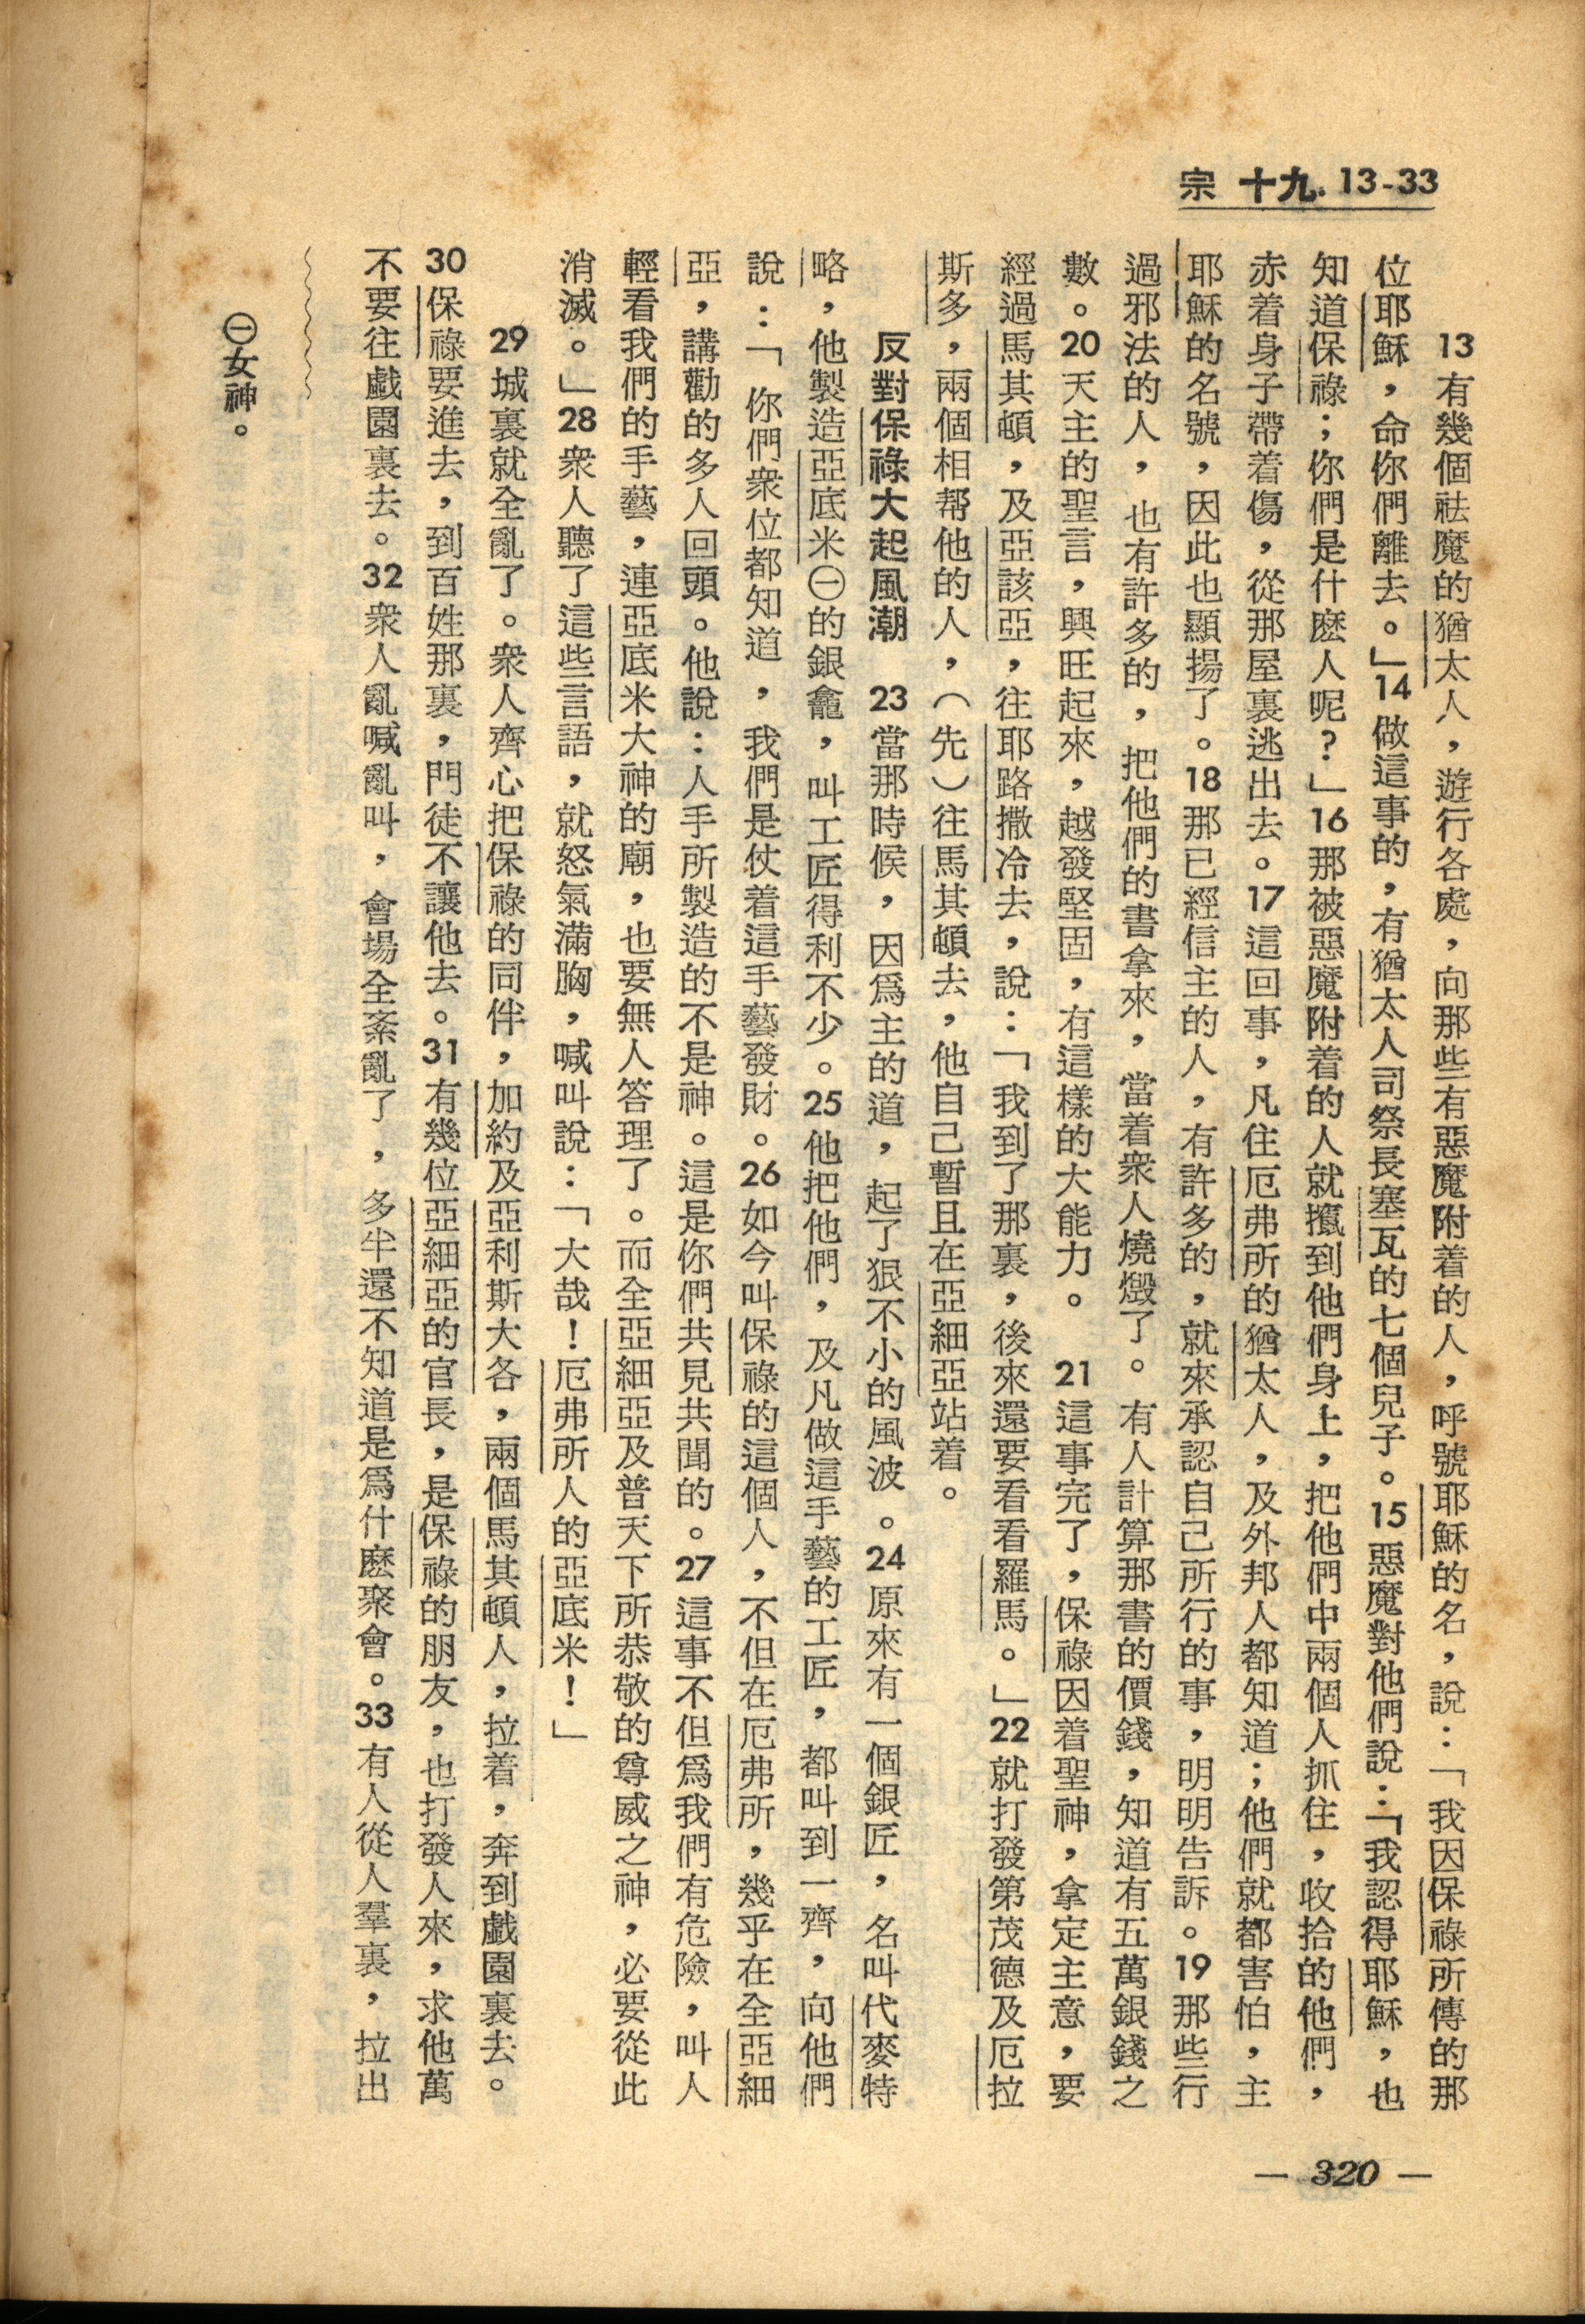 宗 十九. 13-33
13 有幾個祛魔的猶太人，遊行各處，向那些有惡魔附着的人，呼號耶穌的名，說：「我因保祿所傳的那
位耶穌，命你們離去。」14 做這事的，有猶太人司祭長塞瓦的七個兒子。15 惡魔對他們說：「我認得耶穌，也
知道保祿；你們是什麽人呢？」16 那被惡魔附着的人就攛到他們身上，把他們中兩個人抓住，收拾的他們，
赤着身子帶着傷，從那屋裏逃出去。17 這回事，凡住厄弗所的猶太人，及外邦人都知道；他們就都害怕，主
耶穌的名號，因此也顯揚了。18 那已經信主的人，有許多的，就來承認自己所行的事，明明告訴。19 那些行
過邪法的人，也有許多的，把他們的書拿來，當着衆人燒燬了。有人計算那書的價錢，知道有五萬銀錢之
數。20 天主的聖言，興旺起來，越發堅固，有這樣的大能力。 21 這事完了，保祿因着聖神，拿定主意，要
經過馬其頓，及亞該亞，往耶路撒冷去，說：「我到了那裏，後來還要看看羅馬。」22 就打發第茂德及厄拉
斯多，兩個相帮他的人，（先）往馬其頓去，他自己暫且在亞細亞站着。
反對保祿大起風潮 23 當那時候，因爲主的道，起了狠不小的風波。24 原來有一個銀匠，名叫代麥特
略，他製造亞底米㊀的銀龕，叫工匠得利不少。25 他把他們，及凡做這手藝的工匠，都叫到一齊，向他們
說：「你們衆位都知道，我們是仗着這手藝發財。26 如今叫保祿的這個人，不但在厄弗所，幾乎在全亞細
亞，講勸的多人回頭。他說：人手所製造的不是神。這是你們共見共聞的。27 這事不但爲我們有危險，叫人
輕看我們的手藝，連亞底米大神的廟，也要無人答理了。而全亞細亞及普天下所恭敬的尊威之神，必要從此
消滅。」28 衆人聽了這些言語，就怒氣滿胸，喊叫說：「大哉！厄弗所人的亞底米！」
29 城裏就全亂了。衆人齊心把保祿的同伴，加約及亞利斯大各，兩個馬其頓人，拉着，奔到戲園裏去。
30 保祿要進去，到百姓那裏，門徒不讓他去。31 有幾位亞細亞的官長，是保祿的朋友，也打發人來，求他萬
不要往戲園裏去。32 衆人亂喊亂叫，會場全紊亂了，多半還不知道是爲什麽聚會。33 有人從人羣裏，拉出
㊀女神。
— 320 —